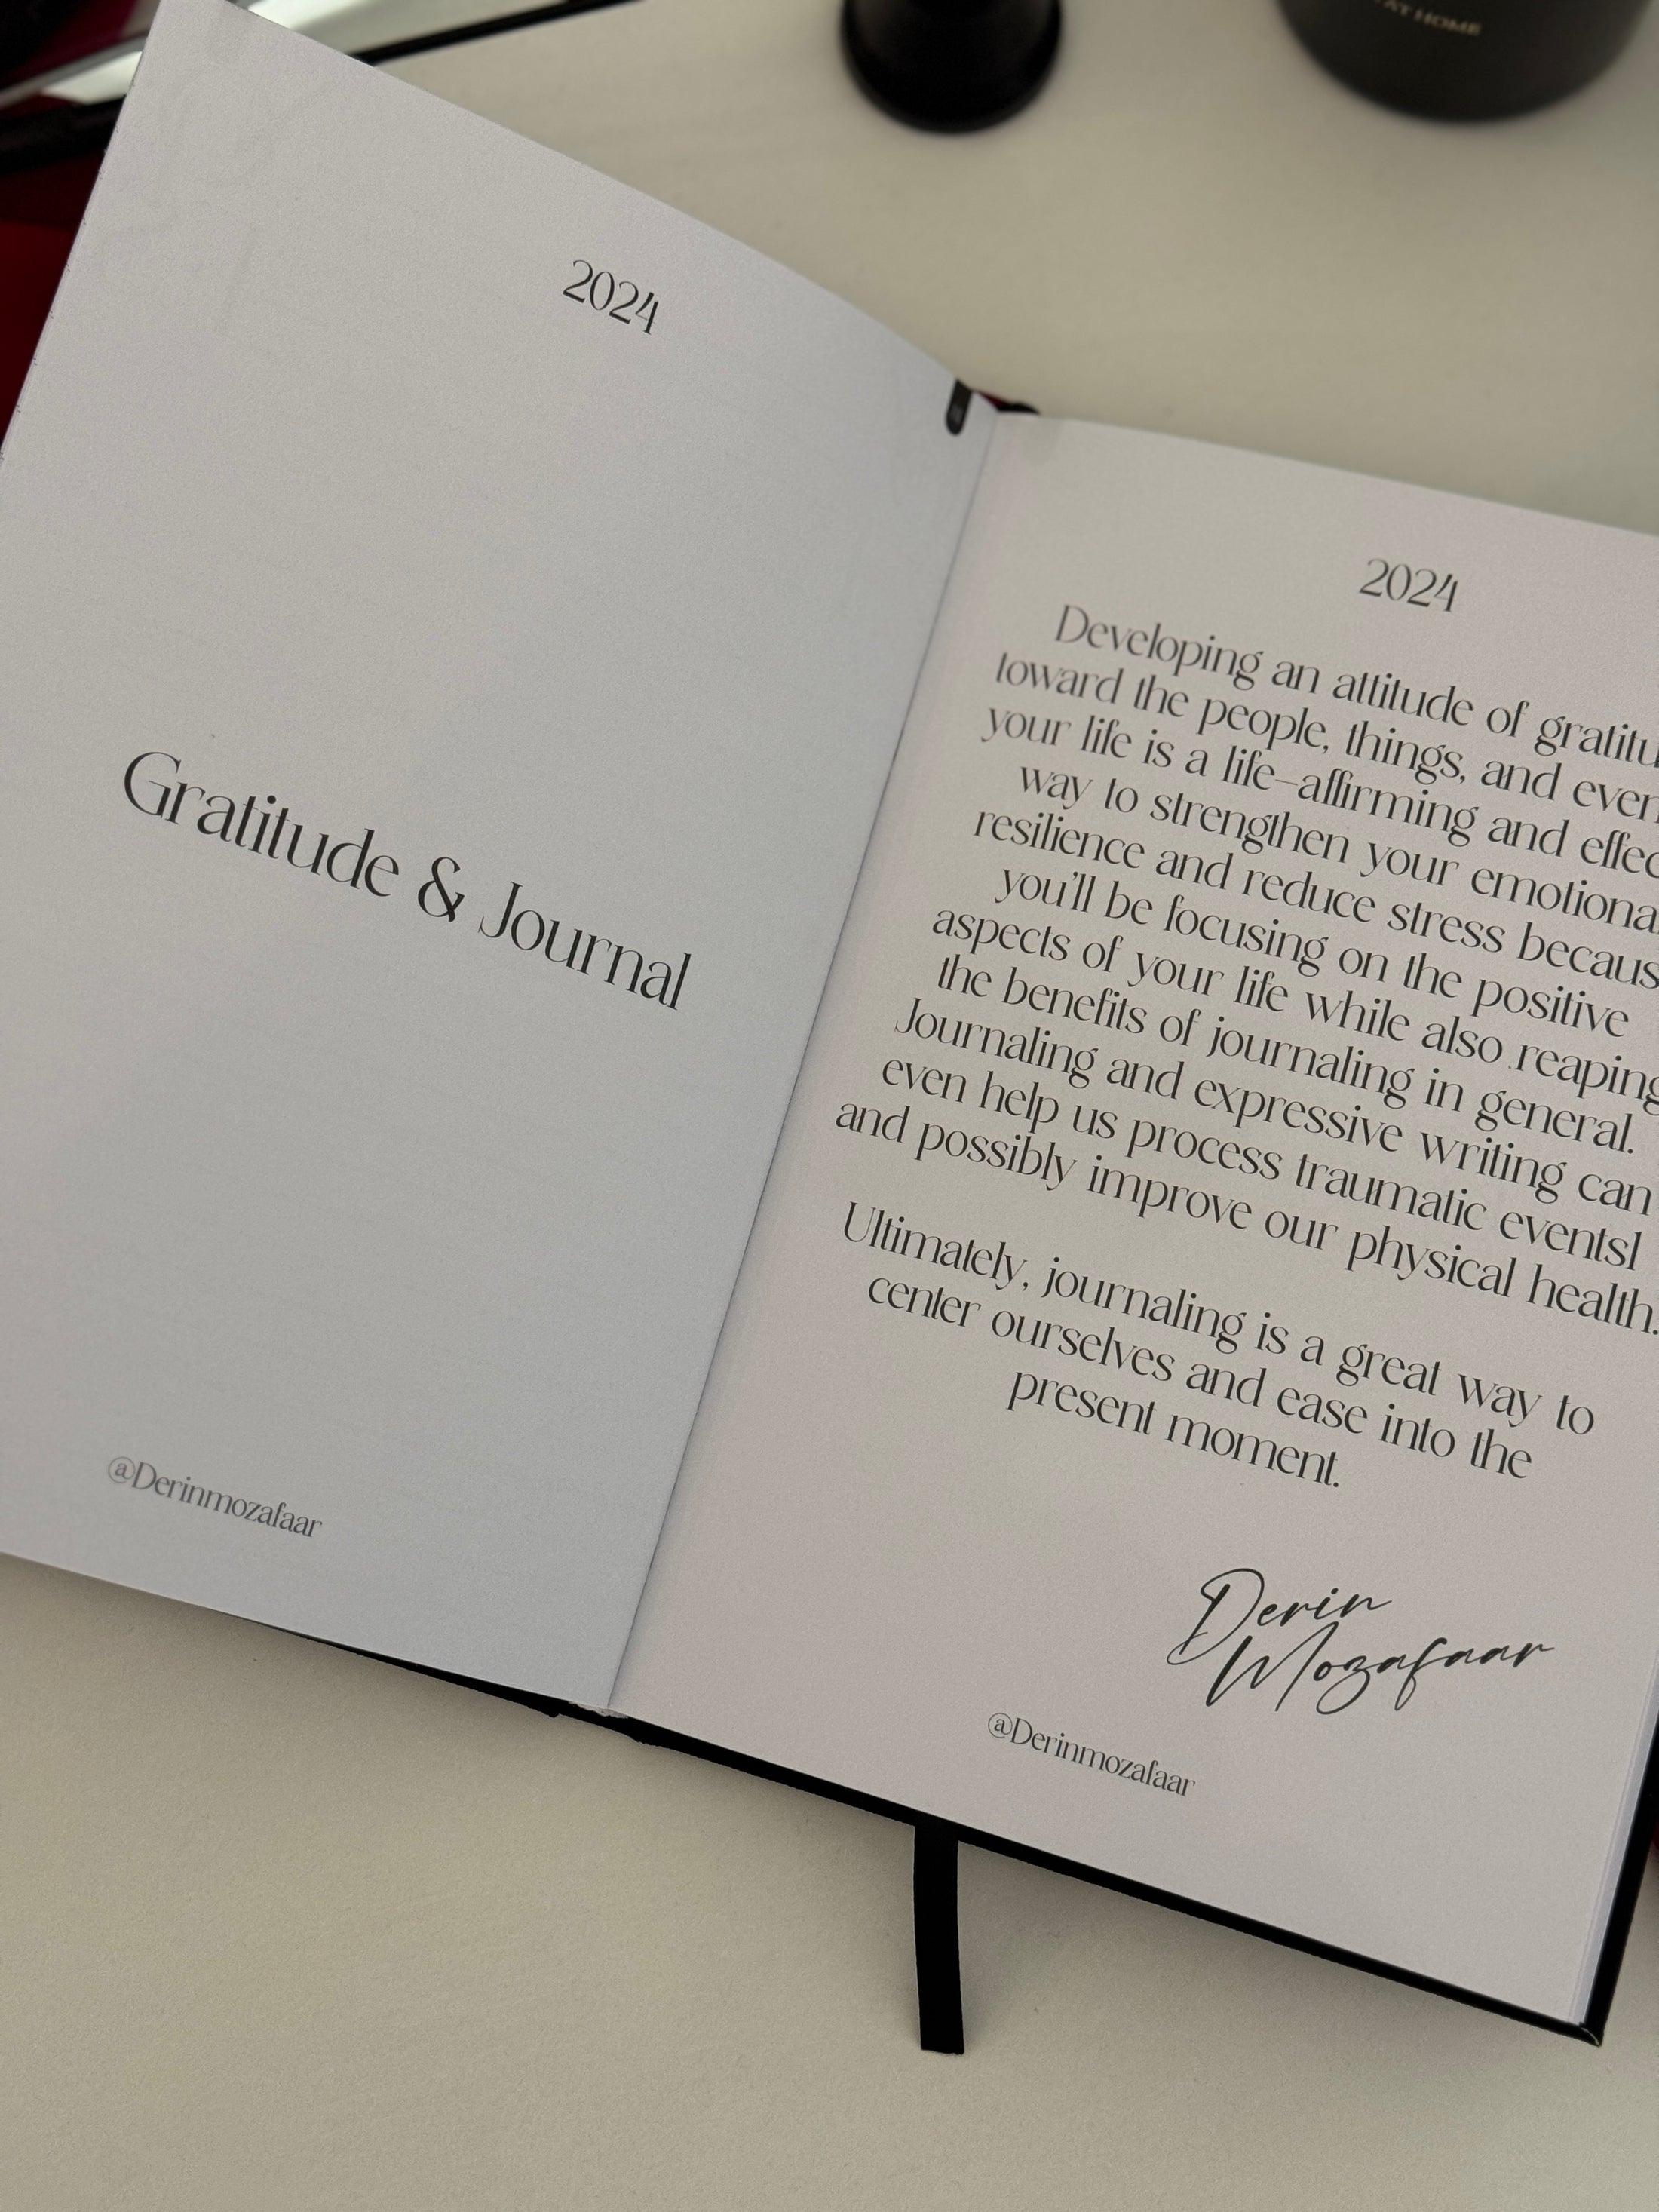 AT HOME
2024
Gratitude & Journal
@Derinmozafaar
2024
Developing an attitude of gratitu
toward the people, things, and even
your life is a life-affirming and effec
way to strengthen your emotiona
resilience and reduce stress becaus
you'll be focusing on the positive
aspects of your life while also reaping
the benefits of journaling in general.
Journaling and expressive writing can
even help us process traumatic events|
and possibly improve our physical health.
Ultimately, journaling is a great way to
center ourselves and ease into the
present moment.
Derin
Mozafaar
@Derinmozafaar